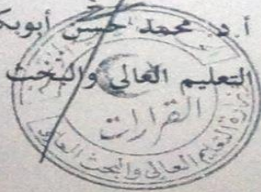 أ.د محمد حسن أبوبك
التعليم العالي والبحث
القرارات
وزارة التعليم العالي والبحث العلمي